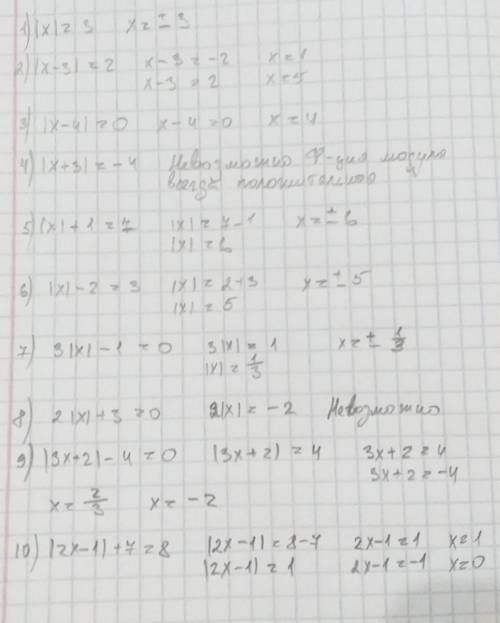 1) |x| = 3 x = ± 3
2) |x-3| = 2 x-3 = -2 x = 1
x-3 = 2 x = 5
3) |x-4| = 0 x-4 = 0 x = 4
4) |x+3| = -4 Невозможно Ф-ция модуля
всегда положительная
5) |x| + 1 = 7 |x| = 7-1 x = ± 6
|x| = 6
6) |x| - 2 = 3 |x| = 2+3 x = ± 5
|x| = 5
7) 3|x| - 1 = 0 3|x| = 1 x = ± 1/3
|x| = 1/3
8) 2|x| + 3 = 0 2|x| = -2 Невозможно
9) |3x+2| - 4 = 0 |3x+2| = 4 3x+2 = 4
3x+2 = -4
x = 2/3 x = -2
10) |2x-1| + 7 = 8 |2x-1| = 8-7 2x-1 = 1 x = 1
|2x-1| = 1 2x-1 = -1 x = 0